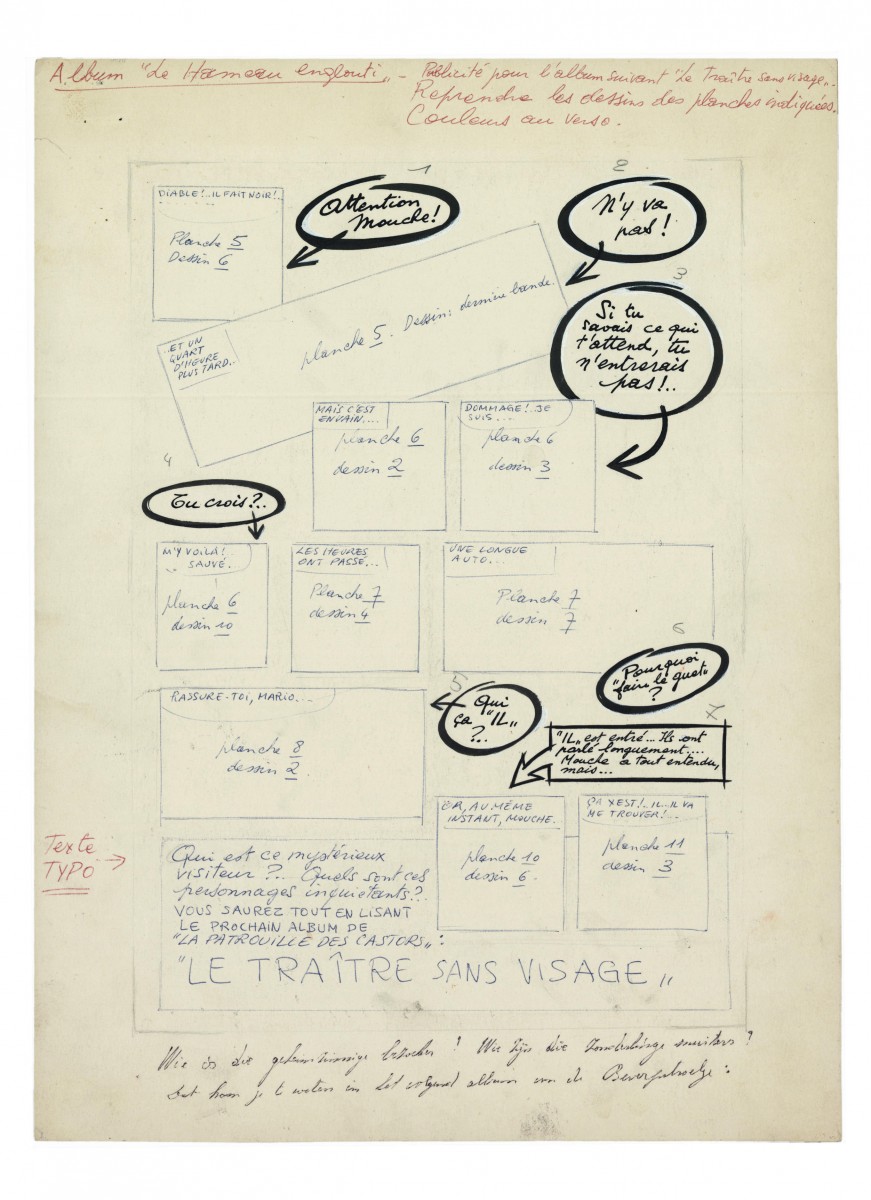 Album "Le Hameau englouti„ - Publicité pour l'album suivant "Le Traître sans visage„.
Reprendre les dessins des planches indiquées.
Couleurs au verso.
1
2
DIABLE!..IL FAIT NOIR!..
Planche 5
Dessin 6
Attention
Mouche!
N'y va
pas!
3
..ET UN
QUART
D'HEURE
PLUS TARD..
planche 5. Dessin: dernière bande.
Si tu
savais ce qui
t'attend, tu
n'entrerais
pas!..
MAIS C'EST
EN VAIN....
planche 6
dessin 2
DOMMAGE!..JE
SUIS....
planche 6
dessin 3
4
Tu crois?..
M'Y VOILÀ!
SAUVÉ.
planche 6
dessin 10
LES HEURES
ONT PASSÉ...
Planche 7
dessin 4
UNE LONGUE
AUTO...
Planche 7
dessin 7
6
"Pourquoi
"faire le guet"
?
5
RASSURE-TOI, MARIO...
planche 8
dessin 2
Qui
ça "IL„
?..
7
"IL„ est entré... Ils ont
parlé longuement....
Mouche a tout entendu,
mais...
OR, AU MÊME
INSTANT, MOUCHE.
planche 10
dessin 6
ÇA Y EST!..IL..IL VA
ME TROUVER!..
planche 11
dessin 3
Texte
TYPO
Qui est ce mystérieux
visiteur?.. Quels sont ces
personnages inquiétants?.
VOUS SAUREZ TOUT EN LISANT
LE PROCHAIN ALBUM DE
"LA PATROUILLE DES CASTORS„:
"LE TRAÎTRE SANS VISAGE„
Wie is die geheimzinnige bezoeker? Wie zijn die zonderlinge ?
Dat kom je te weten in het volgend album van de Beverpatroelje: